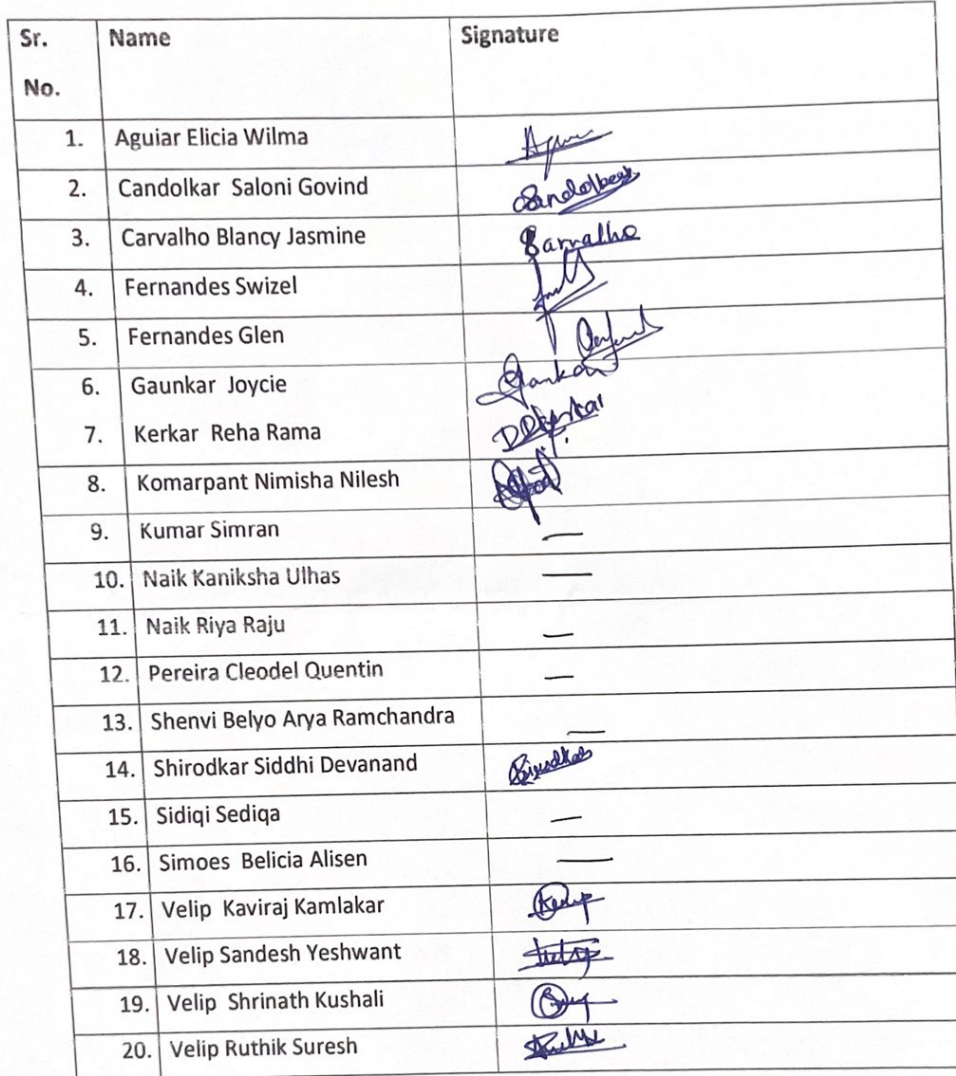 Sr. No. Name Signature
1. Aguiar Elicia Wilma
2. Candolkar Saloni Govind Candolkar
3. Carvalho Blancy Jasmine Carvalho
4. Fernandes Swizel
5. Fernandes Glen
6. Gaunkar Joycie Gaunkar
7. Kerkar Reha Rama
8. Komarpant Nimisha Nilesh
9. Kumar Simran —
10. Naik Kaniksha Ulhas —
11. Naik Riya Raju —
12. Pereira Cleodel Quentin —
13. Shenvi Belyo Arya Ramchandra —
14. Shirodkar Siddhi Devanand
15. Sidiqi Sediqa —
16. Simoes Belicia Alisen —
17. Velip Kaviraj Kamlakar
18. Velip Sandesh Yeshwant
19. Velip Shrinath Kushali
20. Velip Ruthik Suresh